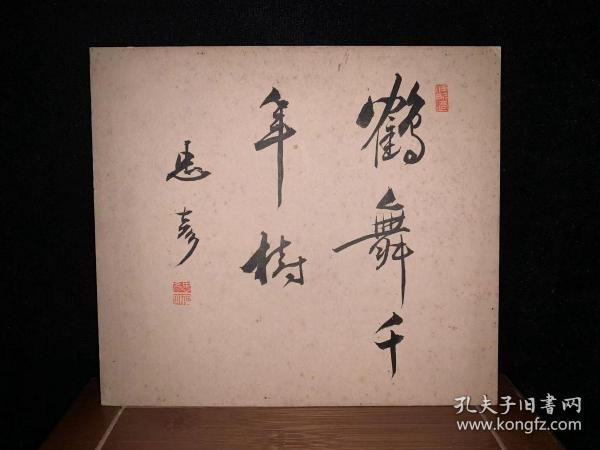 鶴舞千
年樹
忠彦
孔夫子旧书网
www.kongfz.com